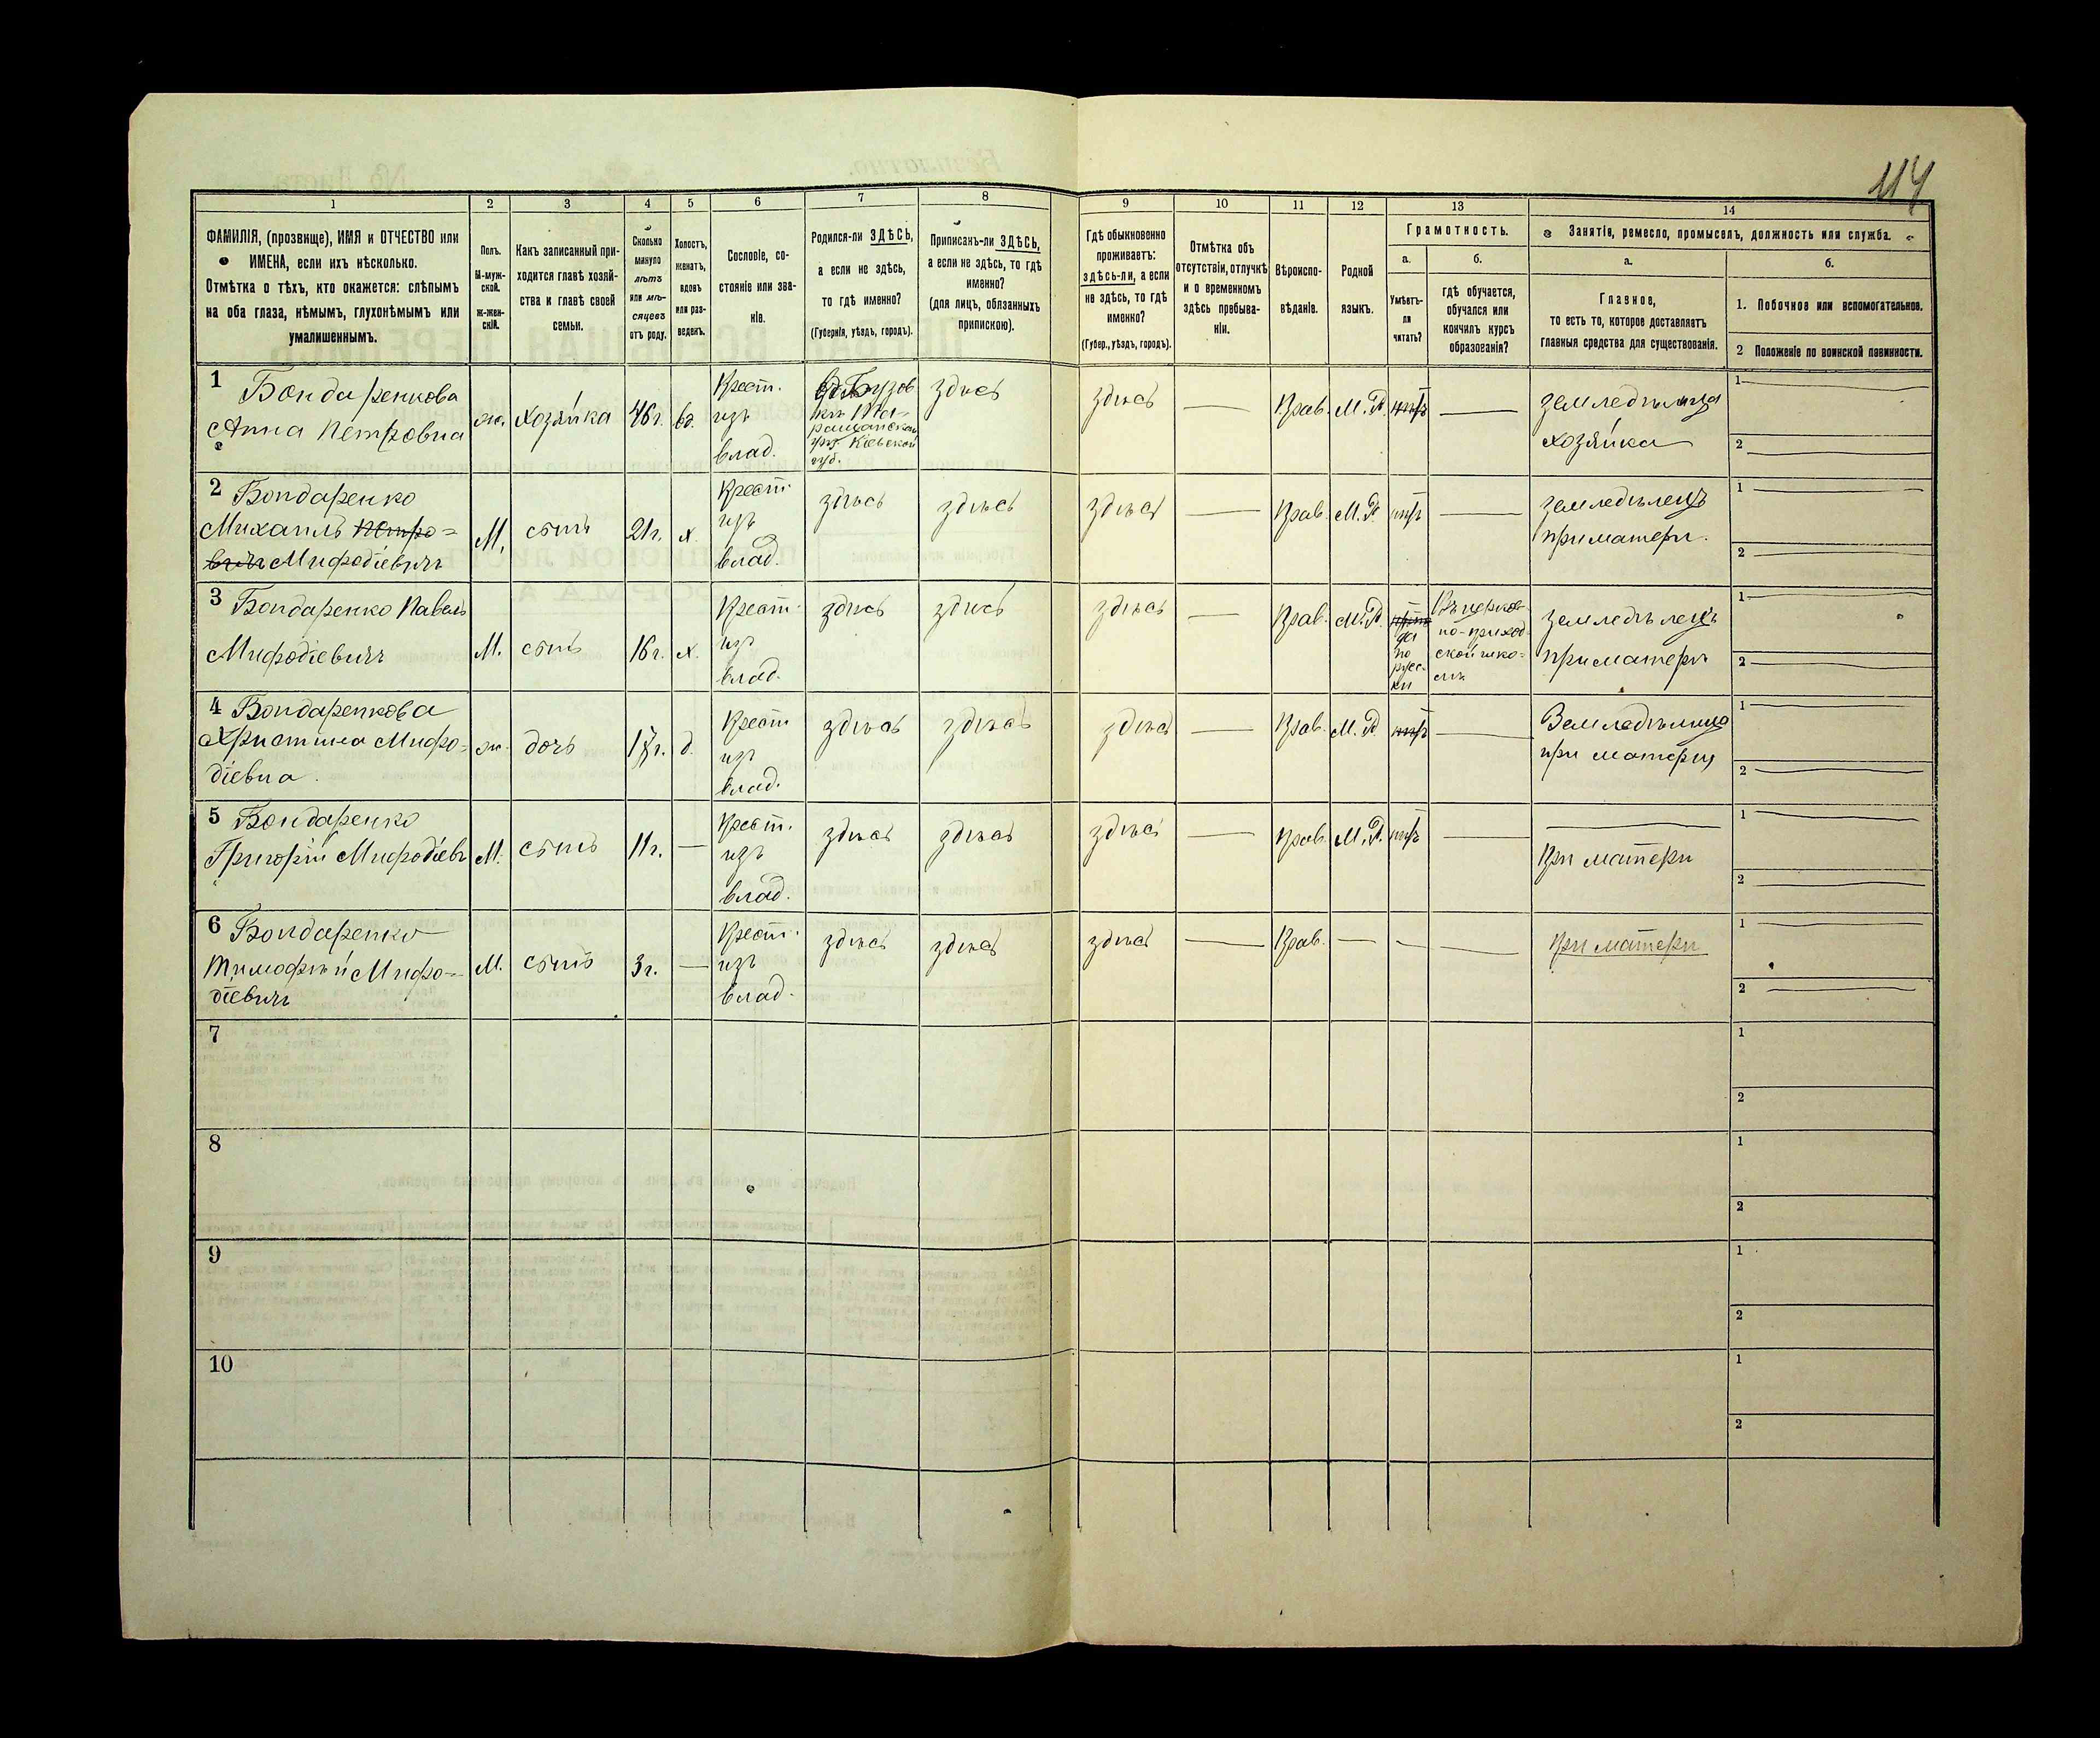 114
1 2 3 4 5 6 7 8 9 10 11 12 13 14
ФАМИЛІЯ, (прозвище), ИМЯ и ОТЧЕСТВО или
ИМЕНА, если ихъ нѣсколько.
Отмѣтка о тѣхъ, кто окажется: слѣпымъ
на оба глаза, нѣмымъ, глухонѣмымъ или
умалишеннымъ.
Полъ.
М-муж-
ской.
Ж-жен-
скій.
Какъ записанный при-
ходится главѣ хозяй-
ства и главѣ своей
семьи.
Сколько
минуло
лѣтъ
или мѣ-
сяцевъ
отъ роду.
Холостъ,
женатъ,
вдовъ
или раз-
веденъ.
Сословіе, со-
стояніе или зва-
ніе.
Родился-ли ЗДѢСЬ,
а если не здѣсь,
то гдѣ именно?
(Губернія, уѣздъ, городъ).
Приписанъ-ли ЗДѢСЬ,
а если не здѣсь, то гдѣ
именно?
(для лицъ, обязанныхъ
припискою).
Гдѣ обыкновенно
проживаетъ:
здѣсь-ли, а если
не здѣсь, то гдѣ
именно?
(Губер., уѣздъ, городъ).
Отмѣтка объ
отсутствіи, отлучкѣ
и о временномъ
здѣсь пребыва-
ніи.
Вѣроиспо-
вѣданіе.
Родной
языкъ.
Грамотность.
а.
Умѣетъ-
ли
читать?
б.
гдѣ обучается,
обучался или
кончилъ курсъ
образованія?
Занятіе, ремесло, промыселъ, должность или служба.
а.
Главное,
то есть то, которое доставляетъ
главныя средства для существованія.
б.
1. Побочное или вспомогательное.
2 Положеніе по воинской повинности.
1 Бондаренкова
Анна Петровна
ж.
хозяйка
46 г.
вд.
Крест.
изъ
влад.
Бузов
ращанской
Кіевской
губ.
здѣсь
здѣсь
Прав.
М. Р.
нѣтъ
земледѣлица
хозяйка
1
2
2 Бондаренко
Михаилъ Петро=
вичъ Мифодіевичъ
М.
сынъ
21 г.
х.
Крест.
изъ
влад.
здѣсь
здѣсь
здѣсь
Прав.
М. Р.
нѣтъ
земледѣлецъ
при матери.
1
2
3 Бондаренко Павелъ
Мифодіевичъ
М.
сынъ
16 г.
х.
Крест.
изъ
влад.
здѣсь
здѣсь
здѣсь
Прав.
М. Р.
да
по
рус-
ки
Въ церков
но-приход
ской шко=
лѣ
земледѣлецъ
при матери
1
2
4 Бондаренкова
Христина Мифо=
діевна.
ж.
дочь
д.
Крест
изъ
влад.
здѣсь
здѣсь
здѣсь
Прав.
М. Р.
нѣтъ
Земледѣлица
при матери
1
2
5 Бондаренко
Григорій Мифодіевъ
М.
сынъ
11 г.
Крест.
изъ
влад.
здѣсь
здѣсь
здѣсь
Прав.
М. Р.
нѣтъ
При матери
1
2
6 Бондаренко
Тимофѣй Мифо=
діевичъ
М.
сынъ
3 г.
Крест.
изъ
влад.
здѣсь
здѣсь
здѣсь
Прав.
При матери
1
2
7
1
2
8
1
2
9
1
2
10
1
2